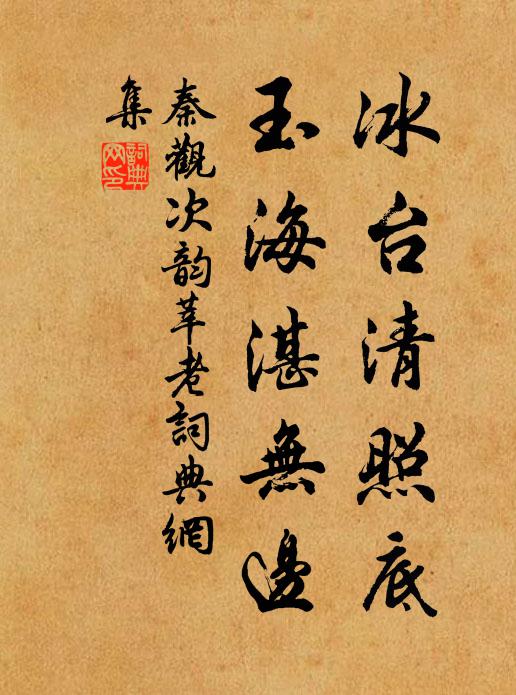 冰台清照底
玉海湛無邊
秦觀次韵莘老詞典網
集
詞典網印